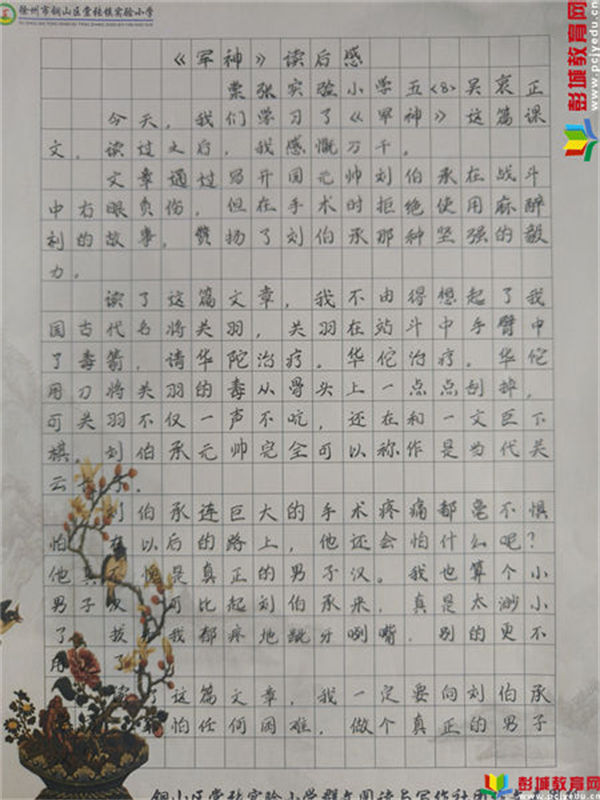 徐州市铜山区棠张镇实验小学
彭城教育网
www.pcjyedu.cn
《军神》读后感
棠张实验小学五<8>吴衷正
今天，我们学习了《军神》这篇课
文，读过之后，我感慨万千。
文章通过写开国元帅刘伯承在战斗
中右眼负伤，但在手术时拒绝使用麻醉
剂的故事，赞扬了刘伯承那种坚强的毅
力。
读了这篇文章，我不由得想起了我
国古代名将关羽，关羽在站斗中手臂中
了毒箭，请华陀治疗。华佗治疗。华佗
用刀将关羽的毒从骨头上一点点刮掉，
可关羽不仅一声不吭，还在和一文臣下
棋。刘伯承元帅完全可以称作是当代关
云
刘伯承连巨大的手术疼痛都毫不惧
怕 在以后的路上，他还会怕什么呢？
他真不愧是真正的男子汉。我也算个小
男子汉 可比起刘伯承来，真是太渺小
了 拔 我都疼地龇牙咧嘴，别的更不
用 了
读了这篇文章，我一定要向刘伯承
怕任何困难，做个真正的男子
铜山区棠张实验小学群文阅读与写作社团
彭城教育网
www.pcjyedu.cn